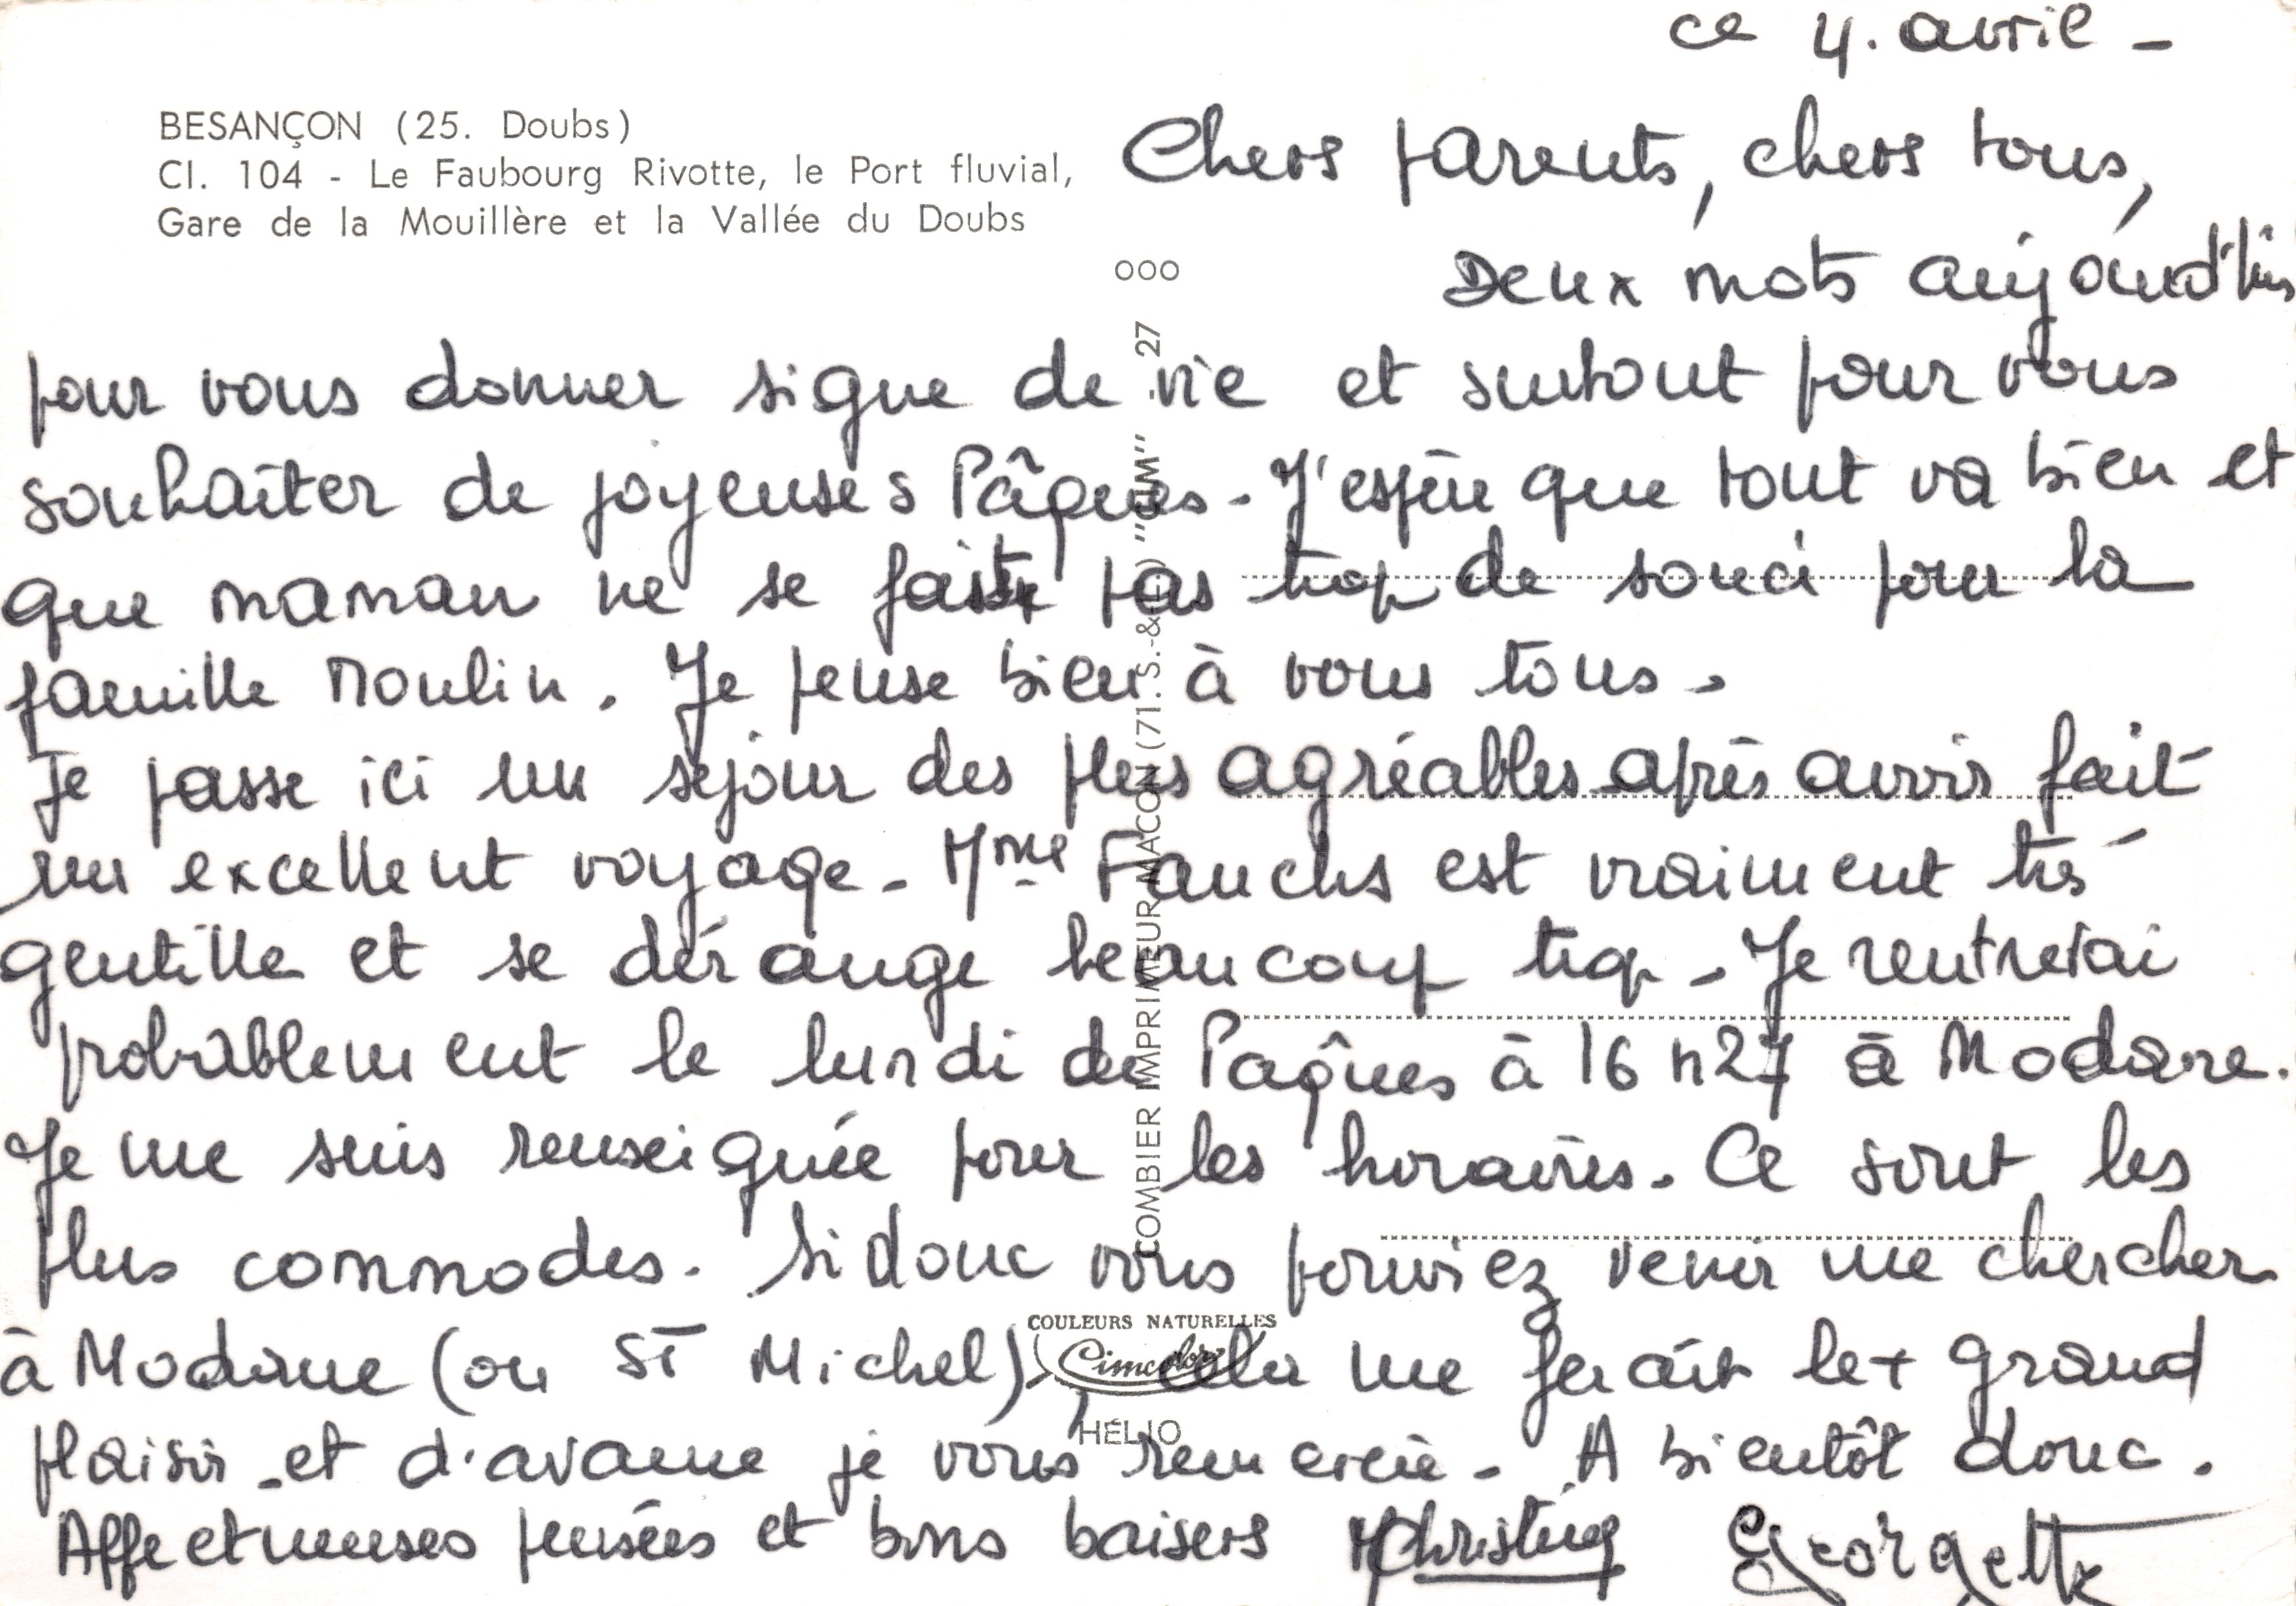 ce 4. avril -
BESANÇON (25. Doubs)
Cl. 104 - Le Faubourg Rivotte, le Port fluvial,
Gare de la Mouillère et la Vallée du Doubs
Chers parents, chers tous,
Deux mots aujourd'hui
pour vous donner signe de vie et surtout pour vous
souhaiter de joyeuses Pâques - J'espère que tout va bien et
que maman ne se fait pas trop de souci pour la
famille Moulin. Je pense bien à vous tous.
Je passe ici un séjour des plus agréables après avoir fait
un excellent voyage - Mme Fauchs est vraiment très
gentille et se dérange beaucoup trop - Je rentrerai
probablement le lundi de Paqûes à 16 h 27 à Modane.
Je me suis renseignée pour les horaires. Ce sont les
plus commodes. Si donc vous pouviez venir me chercher
à Modane (ou St Michel), cela me ferait le + grand
plaisir et d'avance je vous remercie - A bientôt donc.
Affectueuses pensées et bons baisers Georgette
ooo
COMBIER IMPRIMEUR MACON (71. S.-&-L.) "CIM" 27
COULEURS NATURELLES
Cimcolor
HÉLIO